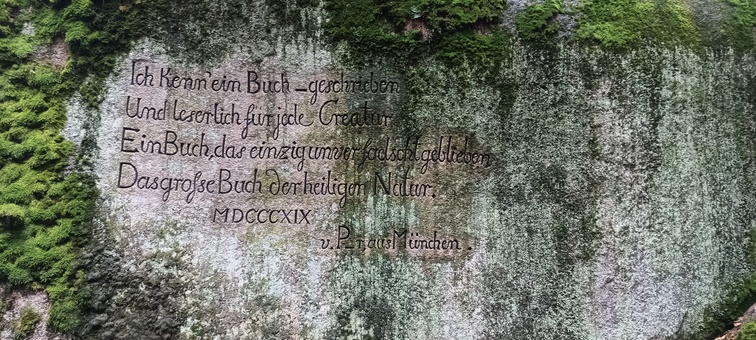 Ich Kenn' ein Buch – geschrieben
Und leserlich fur jede Creatur
Ein Buch, das einzig unverfadscht geblieben
Das grosse Buch der heiligen Natur.
MDCCCXIX
v. P. r aus München.